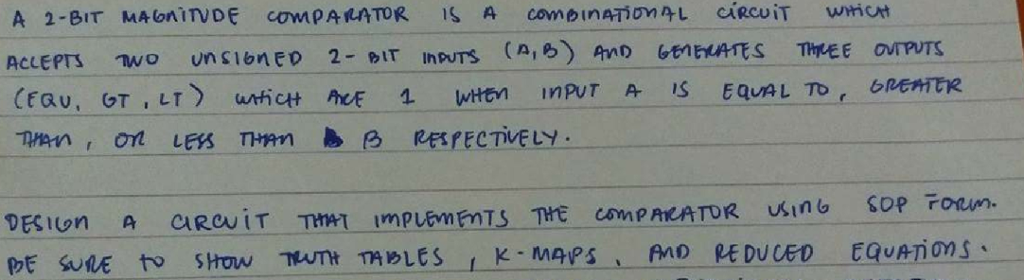 A 2-BIT MAGNITUDE COMPARATOR IS A COMBINATIONAL CIRCUIT WHICH
ACCEPTS TWO UNSIGNED 2-BIT INPUTS (A,B) AND GENERATES THREE OUTPUTS
(EQU, GT, LT) WHICH ARE 1 WHEN INPUT A IS EQUAL TO, GREATER
THAN, OR LESS THAN B RESPECTIVELY.
DESIGN A CIRCUIT THAT IMPLEMENTS THE COMPARATOR USING SOP FORM.
BE SURE TO SHOW TRUTH TABLES, K-MAPS, AND REDUCED EQUATIONS.